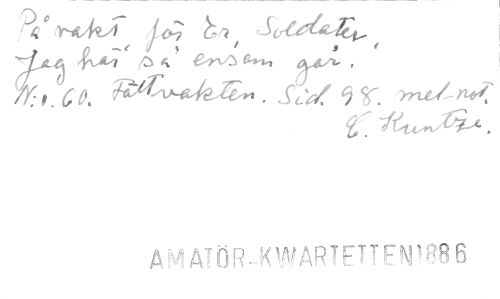 På vakt för Er, Soldater,
Jag här så ensam går.
N:o. 60. Fältvakten. Sid. 98. mel-not.
C. Kuntze.
AMATÖR-KWARTETTEN 1886